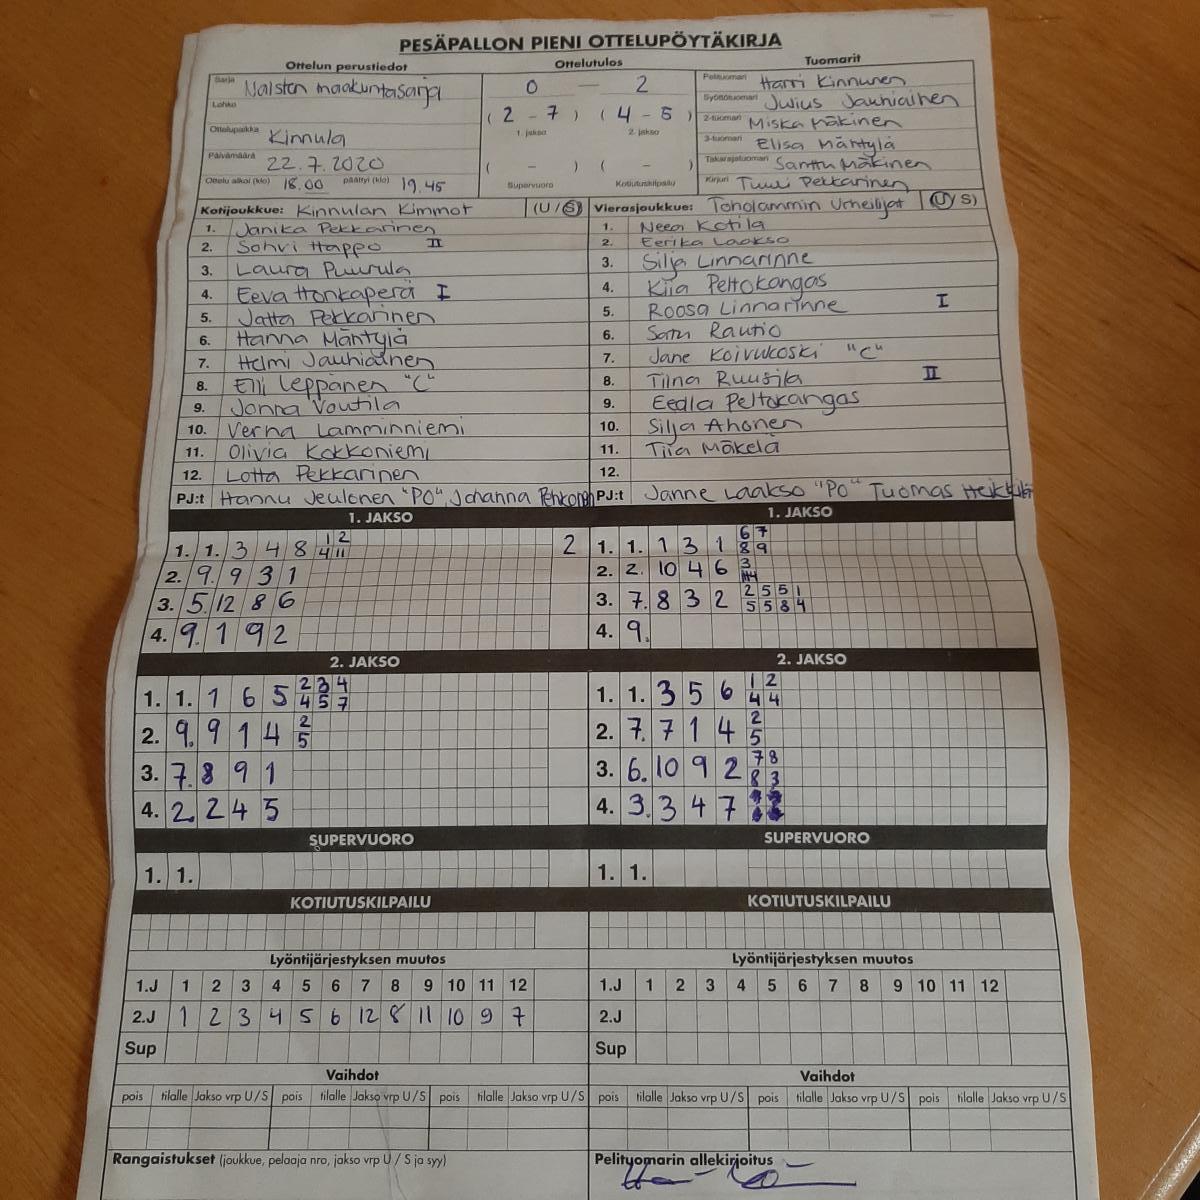 PESÄPALLON PIENI OTTELUPÖYTÄKIRJA
Ottelun perustiedot Ottelutulos Tuomarit
Sarja Naisten maakuntasarja 0 — 2 Pelituomari Harri Kinnunen
Lohko (2 - 7) (4 - 5) Syöttötuomari Julius Jauhiainen
1. jakso 2. jakso 2-tuomari Miska Mäkinen
Ottelupaikka Kinnula 3-tuomari Elisa Mäntylä
Päivämäärä 22.7.2020 ( - ) ( - ) Takarajatuomari Santtu Mäkinen
Ottelu alkoi (klo) 18.00 päättyi (klo) 19.45 Supervuoro Kotiutuskilpailu Kirjuri Tuuli Pekkarinen
Kotijoukkue: Kinnulan Kimmot (U / S) Vierasjoukkue: Toholammin Urheilijat (U / S)
1. Janika Pekkarinen 1. Neea Kotila
2. Sohvi Happo II 2. Eerika Laakso
3. Laura Puurula 3. Silja Linnarinne
4. Eeva Honkaperä I 4. Kiia Peltokangas
5. Jatta Pekkarinen 5. Roosa Linnarinne I
6. Hanna Mäntylä 6. Satu Rautio
7. Helmi Jauhiainen 7. Jane Koivukoski "C"
8. Elli Leppänen "C" 8. Tiina Ruusila II
9. Jonna Voutila 9. Eedla Peltokangas
10. Verna Lamminniemi 10. Silja Ahonen
11. Olivia Kokkoniemi 11. Tiia Mäkelä
12. Lotta Pekkarinen 12.
PJ:t Hannu Jeulonen "PO", Johanna Pehkonen PJ:t Janne Laakso "PO" Tuomas Heikkilä
1. JAKSO 1. JAKSO
1. 1. 3 4 8 1 2 2 1. 1. 1 3 1 6 7
4 11 8 9
2. 9. 9 3 1 2. 2. 10 4 6 3
3. 5. 12 8 6 3. 7. 8 3 2 2 5 5 1
5 5 8 4
4. 9. 1 9 2 4. 9.
2. JAKSO 2. JAKSO
1. 1. 1 6 5 2 3 4 1. 1. 3 5 6 1 2
4 5 7 4 4
2. 9. 9 1 4 2 2. 7. 7 1 4 2
5 5
3. 7. 8 9 1 3. 6. 10 9 2 7 8
8 3
4. 2. 2 4 5 4. 3. 3 4 7
SUPERVUORO SUPERVUORO
1. 1. 1. 1.
KOTIUTUSKILPAILU KOTIUTUSKILPAILU
Lyöntijärjestyksen muutos Lyöntijärjestyksen muutos
1.J 1 2 3 4 5 6 7 8 9 10 11 12 1.J 1 2 3 4 5 6 7 8 9 10 11 12
2.J 1 2 3 4 5 6 12 8 11 10 9 7 2.J
Sup Sup
Vaihdot Vaihdot
pois tilalle Jakso vrp U/S pois tilalle Jakso vrp U/S pois tilalle Jakso vrp U/S pois tilalle Jakso vrp U/S pois tilalle Jakso vrp U/S pois tilalle Jakso vrp U/S
Rangaistukset (joukkue, pelaaja nro, jakso vrp U / S ja syy) Pelituomarin allekirjoitus